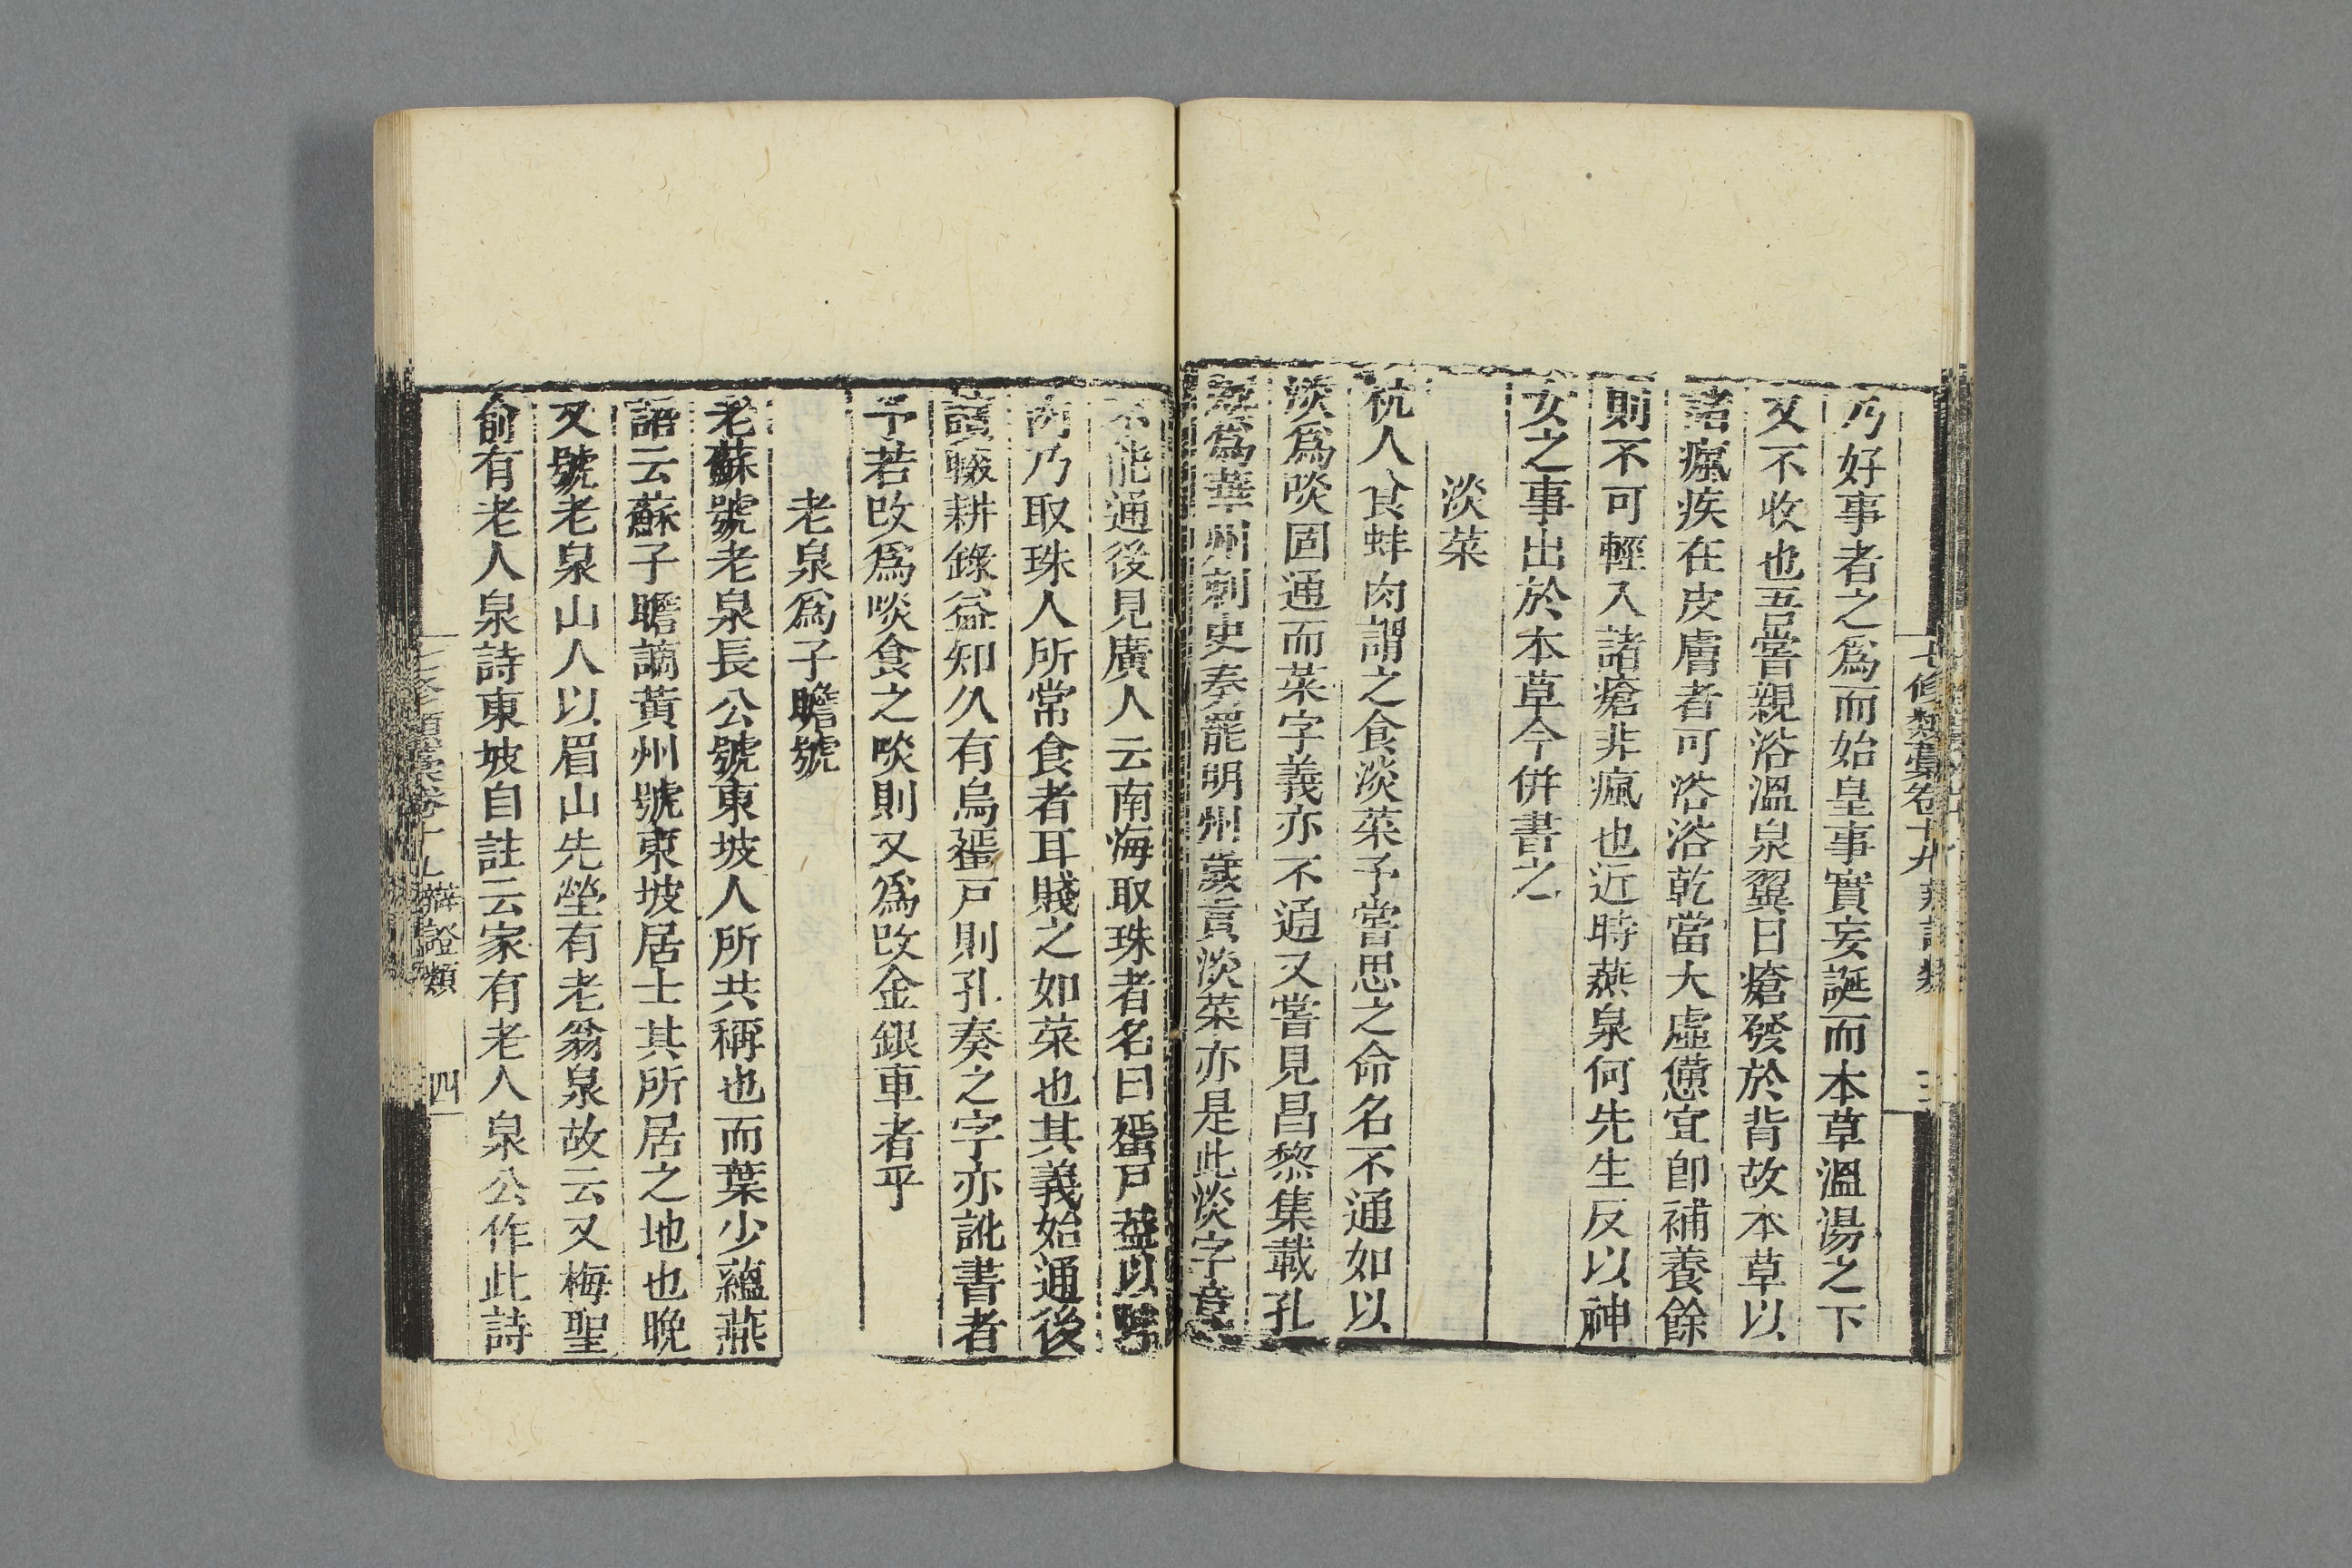 七修類藁卷十九
乃好事者之爲而始皇事實妄誕而本草溫湯之下
又不收也吾嘗親浴溫泉翼日瘡發於背故本草以
諸瘋疾在皮膚者可浴浴乾當大虛憊宜卽補養餘
則不可輕入諸瘡非瘋也近時燕泉何先生反以神
女之事出於本草今併書之
淡菜
杭人食蚌肉謂之食淡菜予嘗思之命名不通如以
淡爲啖固通而菜字義亦不通又嘗見昌黎集載孔
爲華州刺史奏罷明州歲貢淡菜亦是此淡字意
不能通後見廣人云南海取珠者名曰蜑戶葢以蚌
肉乃取珠人所常食者耳賤之如菜也其義始通後
讀輟耕錄益知久有烏蜑戶則孔奏之字亦訛書者
予若改爲啖食之啖則又爲改金銀車者乎
老泉爲子瞻號
老蘇號老泉長公號東坡人所共稱也而葉少蘊燕
語云蘇子瞻謫黃州號東坡居士其所居之地也晚
又號老泉山人以眉山先塋有老翁泉故云又梅聖
俞有老人泉詩東坡自註云家有老人泉公作此詩
七修類藁卷十九 辯證類 四